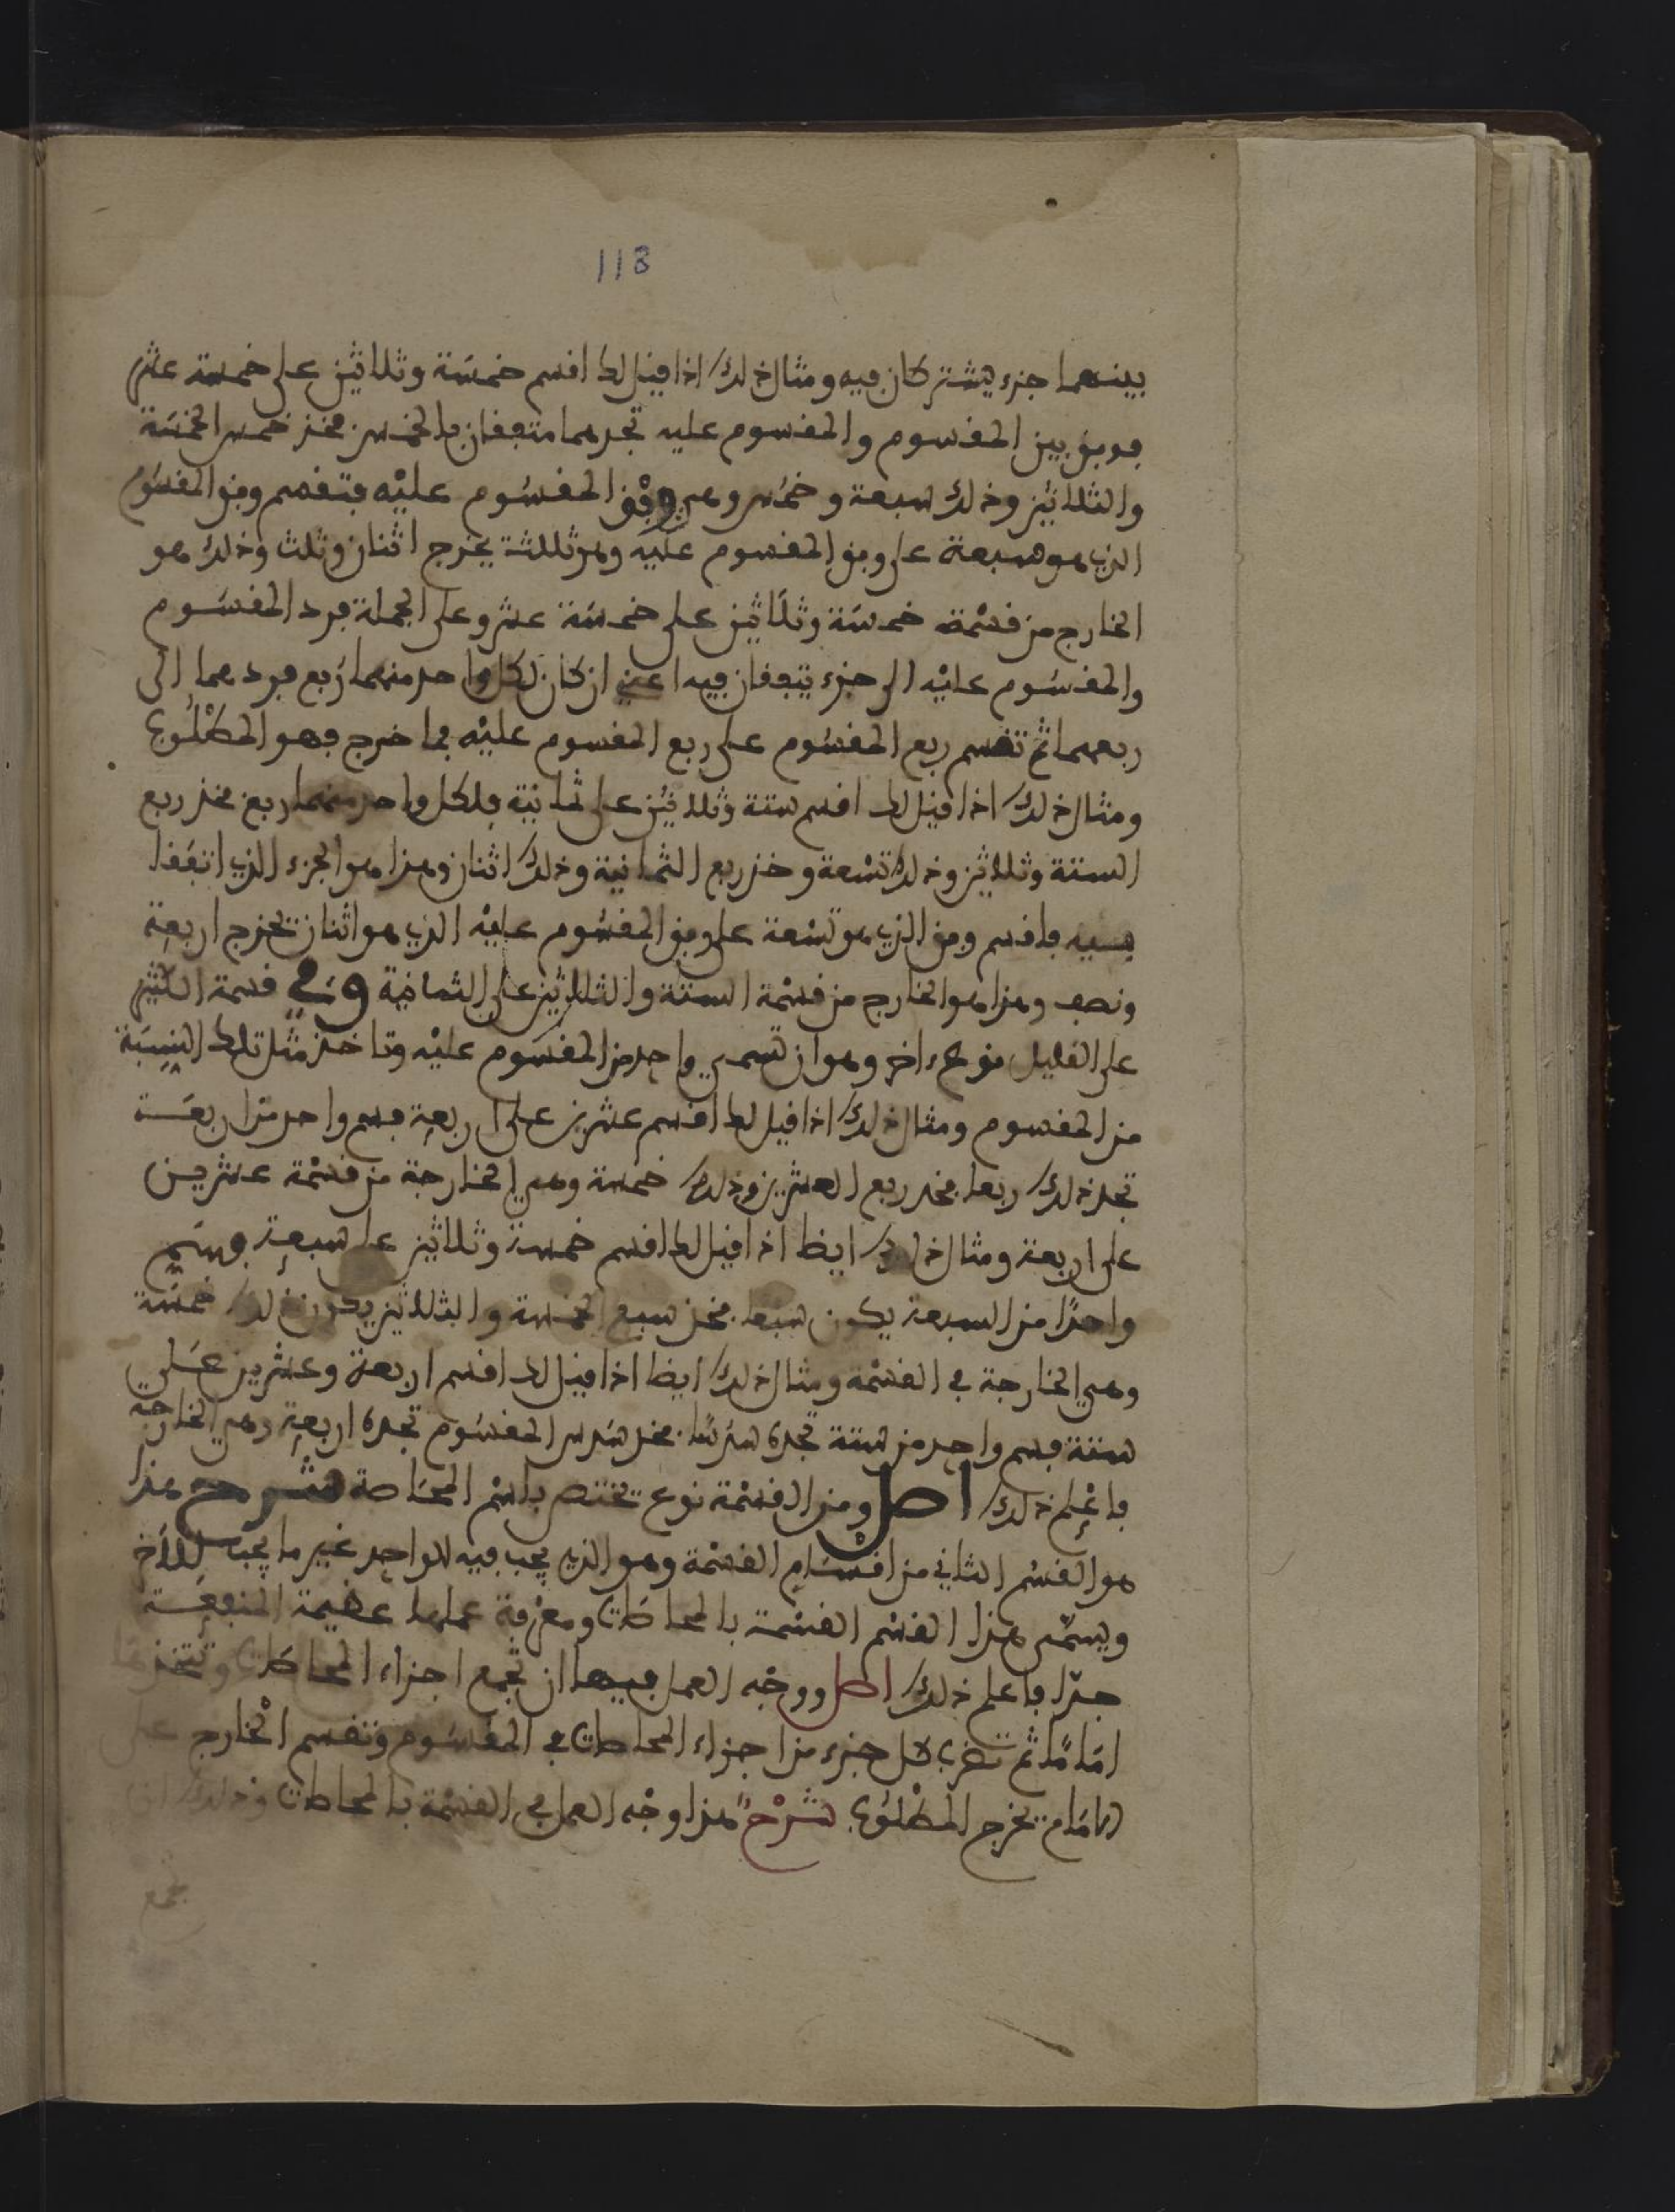 113
بينهما جزء يشتركان فيه ومثال ذلك اذا قيل لك اقسم خمسة وثلاثين على خمسة عشر
فوفق بين المقسوم والمقسوم عليه تجدهما متفقان بالخمس فخذ خمس الخمسة
والثلاثين وذلك سبعة وخمس وهي وفق المقسوم عليه فتقسم وفق المقسوم
الذي هو سبعة على وفق المقسوم عليه وهو ثلثة يخرج اثنان وثلث وذلك هو
الخارج من قسمة خمسة وثلاثين على خمسة عشر وعلى الجملة فرد المقسوم
والمقسوم عليه الى جزء يتفقان فيه اعني ان كان لكل واحد منهما ربع فردهما الى
ربعهما ثم تقسم ربع المقسوم على ربع المقسوم عليه فما خرج فهو المطلوب
ومثال ذلك اذا قيل لك اقسم ستة وثلاثين على ثمانية فلكل واحد منهما ربع فخذ ربع
الستة وثلاثين وذلك تسعة وخذ ربع الثمانية وذلك اثنان وهذا هو الجزء الذي اتفقا
فيه فاقسم وفق الذي هو تسعة على وفق المقسوم عليه الذي هو اثنان تخرج اربعة
ونصف وهذا هو الخارج من قسمة الستة والثلاثين على الثمانية وفي قسمة الكثير
على القليل نوع اخر وهو ان تسمي واحد من المقسوم عليه وتاخذ مثل تلك النسبة
من المقسوم ومثال ذلك اذا قيل لك اقسم عشرين على اربعة فسم واحد من اربعة
تجد ذلك ربعا فخذ ربع العشرين وذلك خمسة وهي الخارجة من قسمة عشرين
على اربعة ومثال ذلك ايضا اذا قيل لك اقسم خمسة وثلاثين على سبعة فسم
واحدا من السبعة يكون سبعا فخذ سبع الخمسة والثلاثين يكون ذلك خمسة
وهي الخارجة في القسمة ومثال ذلك ايضا اذا قيل لك اقسم اربعة وعشرين على
ستة فسم واحد من ستة تجده سدسا فخذ سدس المقسوم تجده اربعة وهي الخارجة
فاعلم ذلك اصل ومن القسمة نوع يختص باسم المحاصة شرح هذا
هو القسم الثاني من اقسام القسمة وهو الذي يجب فيه للواحد غير ما يجب للاخر
ويسمى هذا القسم القسمة بالمحاصات ومعرفة عملها عظيمة المنفعة
جدا فاعلم ذلك اصل ووجه العمل فيها ان تجمع اجزاء المحاصات وتتخذها
اماما ثم تضرب كل جزء من اجزاء المحاصات في المقسوم وتقسم الخارج على
الامام يخرج المطلوب شرح هذا وجه العمل في القسمة بالمحاصات وذلك ان
تجمع